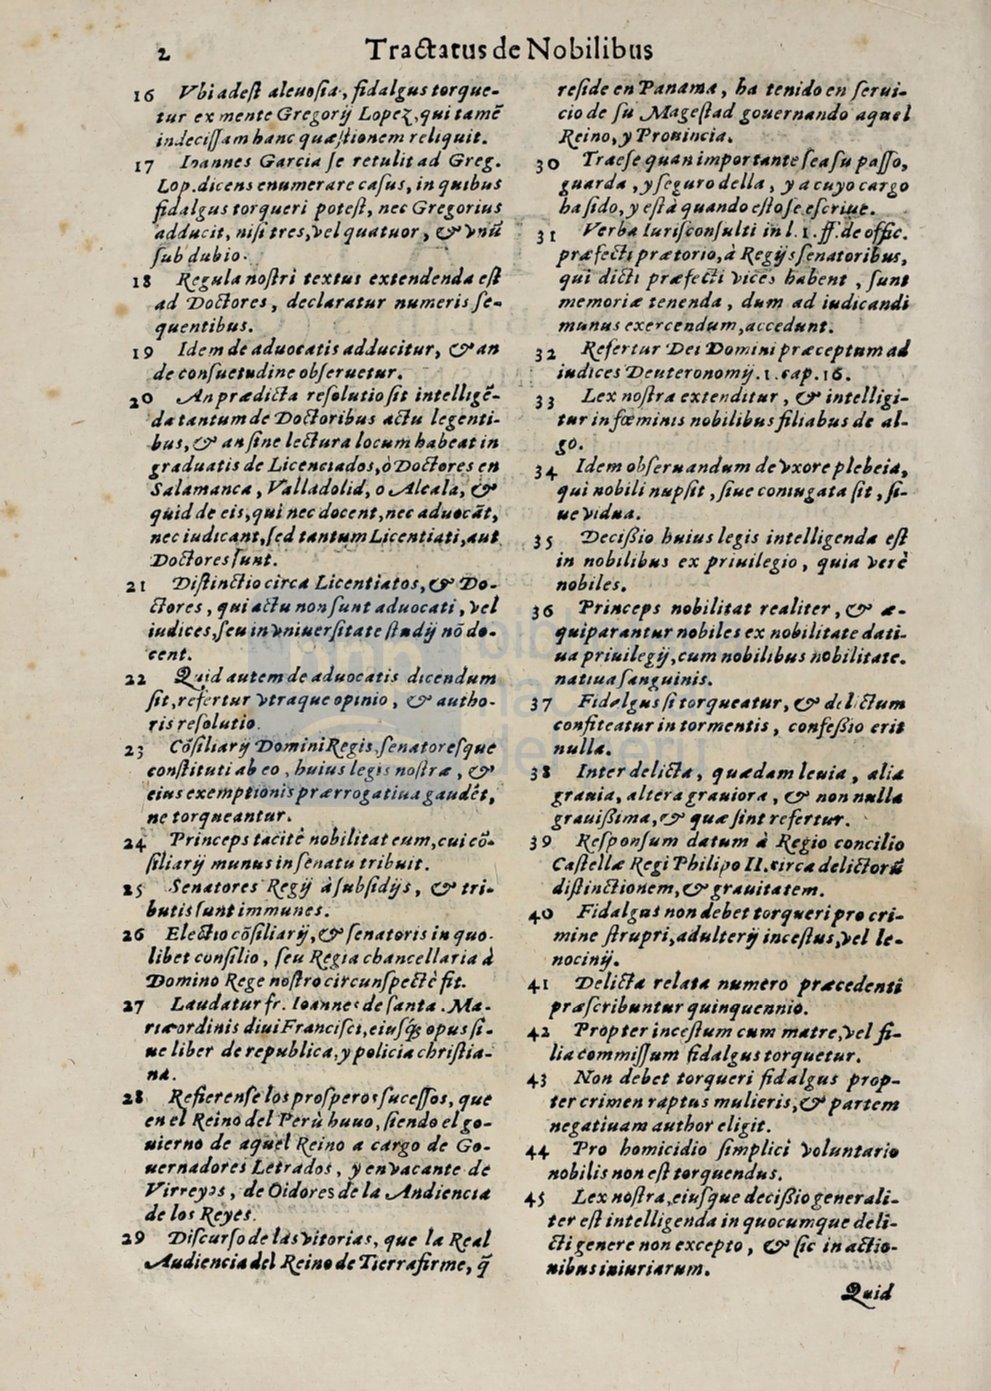 2 Tractatus de Nobilibus
16 Vbi adest aleuosia, fidalgus torque-
tur ex mente Gregorij Lopez, qui tamẽ
indecissam hanc quæstionem reliquit.
17 Ioannes Garcia se retulit ad Greg.
Lop. dicens enumerare casus, in quibus
fidalgus torqueri potest, nec Gregorius
adducit, nisi tres, vel quatuor, & vnũ
sub dubio.
18 Regula nostri textus extendenda est
ad Doctores, declaratur numeris se-
quentibus.
19 Idem de aduocatis adducitur, & an
de consuetudine obseruetur.
20 An prædicta resolutio sit intelligẽ-
da tantum de Doctoribus actu legenti-
bus, & an sine lectura locum habeat in
graduatis de Licenciados, ò Doctores en
Salamanca, Valladolid, o Alcala, &
quid de eis, qui nec docent, nec aduocãt,
nec iudicant, sed tantum Licentiati, aut
Doctores sunt.
21 Distinctio circa Licentiatos, & Do-
ctores, qui actu non sunt aduocati, vel
iudices, seu in vniuersitate studij nõ do-
cent.
22 Quid autem de aduocatis dicendum
sit, refertur vtraque opinio, & autho-
ris resolutio.
23 Cõsiliarij Domini Regis, senatoresque
constituti ab eo, huius legis nostræ, &
eius exemptionis prærrogatiua gaudẽt,
ne torqueantur.
24 Princeps tacitè nobilitat eum, cui cõ-
siliarij munus in senatu tribuit.
25 Senatores Regij à subsidijs, & tri-
butis sunt immunes.
26 Electio cõsiliarij, & senatoris in quo-
libet consilio, seu Regia chancellaria à
Domino Rege nostro circunspectè fit.
27 Laudatur fr. Ioannes de santa Ma-
ria ordinis diui Francisci, eiusq́; opus si-
ue liber de republica, y policia christia-
na.
28 Refierense los prosperos sucessos, que
en el Reino del Perù huuo, siendo el go-
uierno de aquel Reino a cargo de Go-
uernadores Letrados, y en vacante de
Virreyos, de Oidores de la Audiencia
de los Reyes.
29 Discurso de las vitorias, que la Real
Audiencia del Reino de Tierrafirme, q̃
reside en Panama, ha tenido en serui-
cio de su Magestad gouernando aquel
Reino, y Prouincia.
30 Traese quan importante sea su passo,
guarda, y seguro della, y a cuyo cargo
ha sido, y està quando esto se escriue.
31 Verba Iurisconsulti in l. 1. ff. de offic.
præfecti prætorio, à Regijs senatoribus,
qui dicti præfecti vices habent, sunt
memoriæ tenenda, dum ad iudicandi
munus exercendum, accedunt.
32 Refertur Dei Domini præceptum ad
iudices Deuteronomij. 1. cap. 16.
33 Lex nostra extenditur, & intelligi-
tur in fœminis nobilibus filiabus de al-
go.
34 Idem obseruandum de vxore plebeia,
qui nobili nupsit, siue coniugata sit, si-
ue vidua.
35 Decißio huius legis intelligenda est
in nobilibus ex priuilegio, quia verè
nobiles.
36 Princeps nobilitat realiter, & æ-
quiparantur nobiles ex nobilitate dati-
ua priuilegij, cum nobilibus nobilitate.
natiua sanguinis.
37 Fidalgus si torqueatur, & delictum
confiteatur in tormentis, confeßio erit
nulla.
38 Inter delicta, quædam leuia, alia
grauia, altera grauiora, & non nulla
grauißima, & quæ sint refertur.
39 Responsum datum à Regio concilio
Castellæ Regi Philipo II. circa delictorũ
distinctionem, & grauitatem.
40 Fidalgus non debet torqueri pro cri-
mine strupri, adulterij incestus, vel le-
nocinij.
41 Delicta relata numero præcedenti
præscribuntur quinquennio.
42 Propter incestum cum matre, vel fi-
lia commissum fidalgus torquetur.
43 Non debet torqueri fidalgus prop-
ter crimen raptus mulieris, & partem
negatiuam author eligit.
44 Pro homicidio simplici voluntario
nobilis non est torquendus.
45 Lex nostra, eiusque decißio generali-
ter est intelligenda in quocumque deli-
cti genere non excepto, & sic in actio-
nibus iniuriarum.
Quid